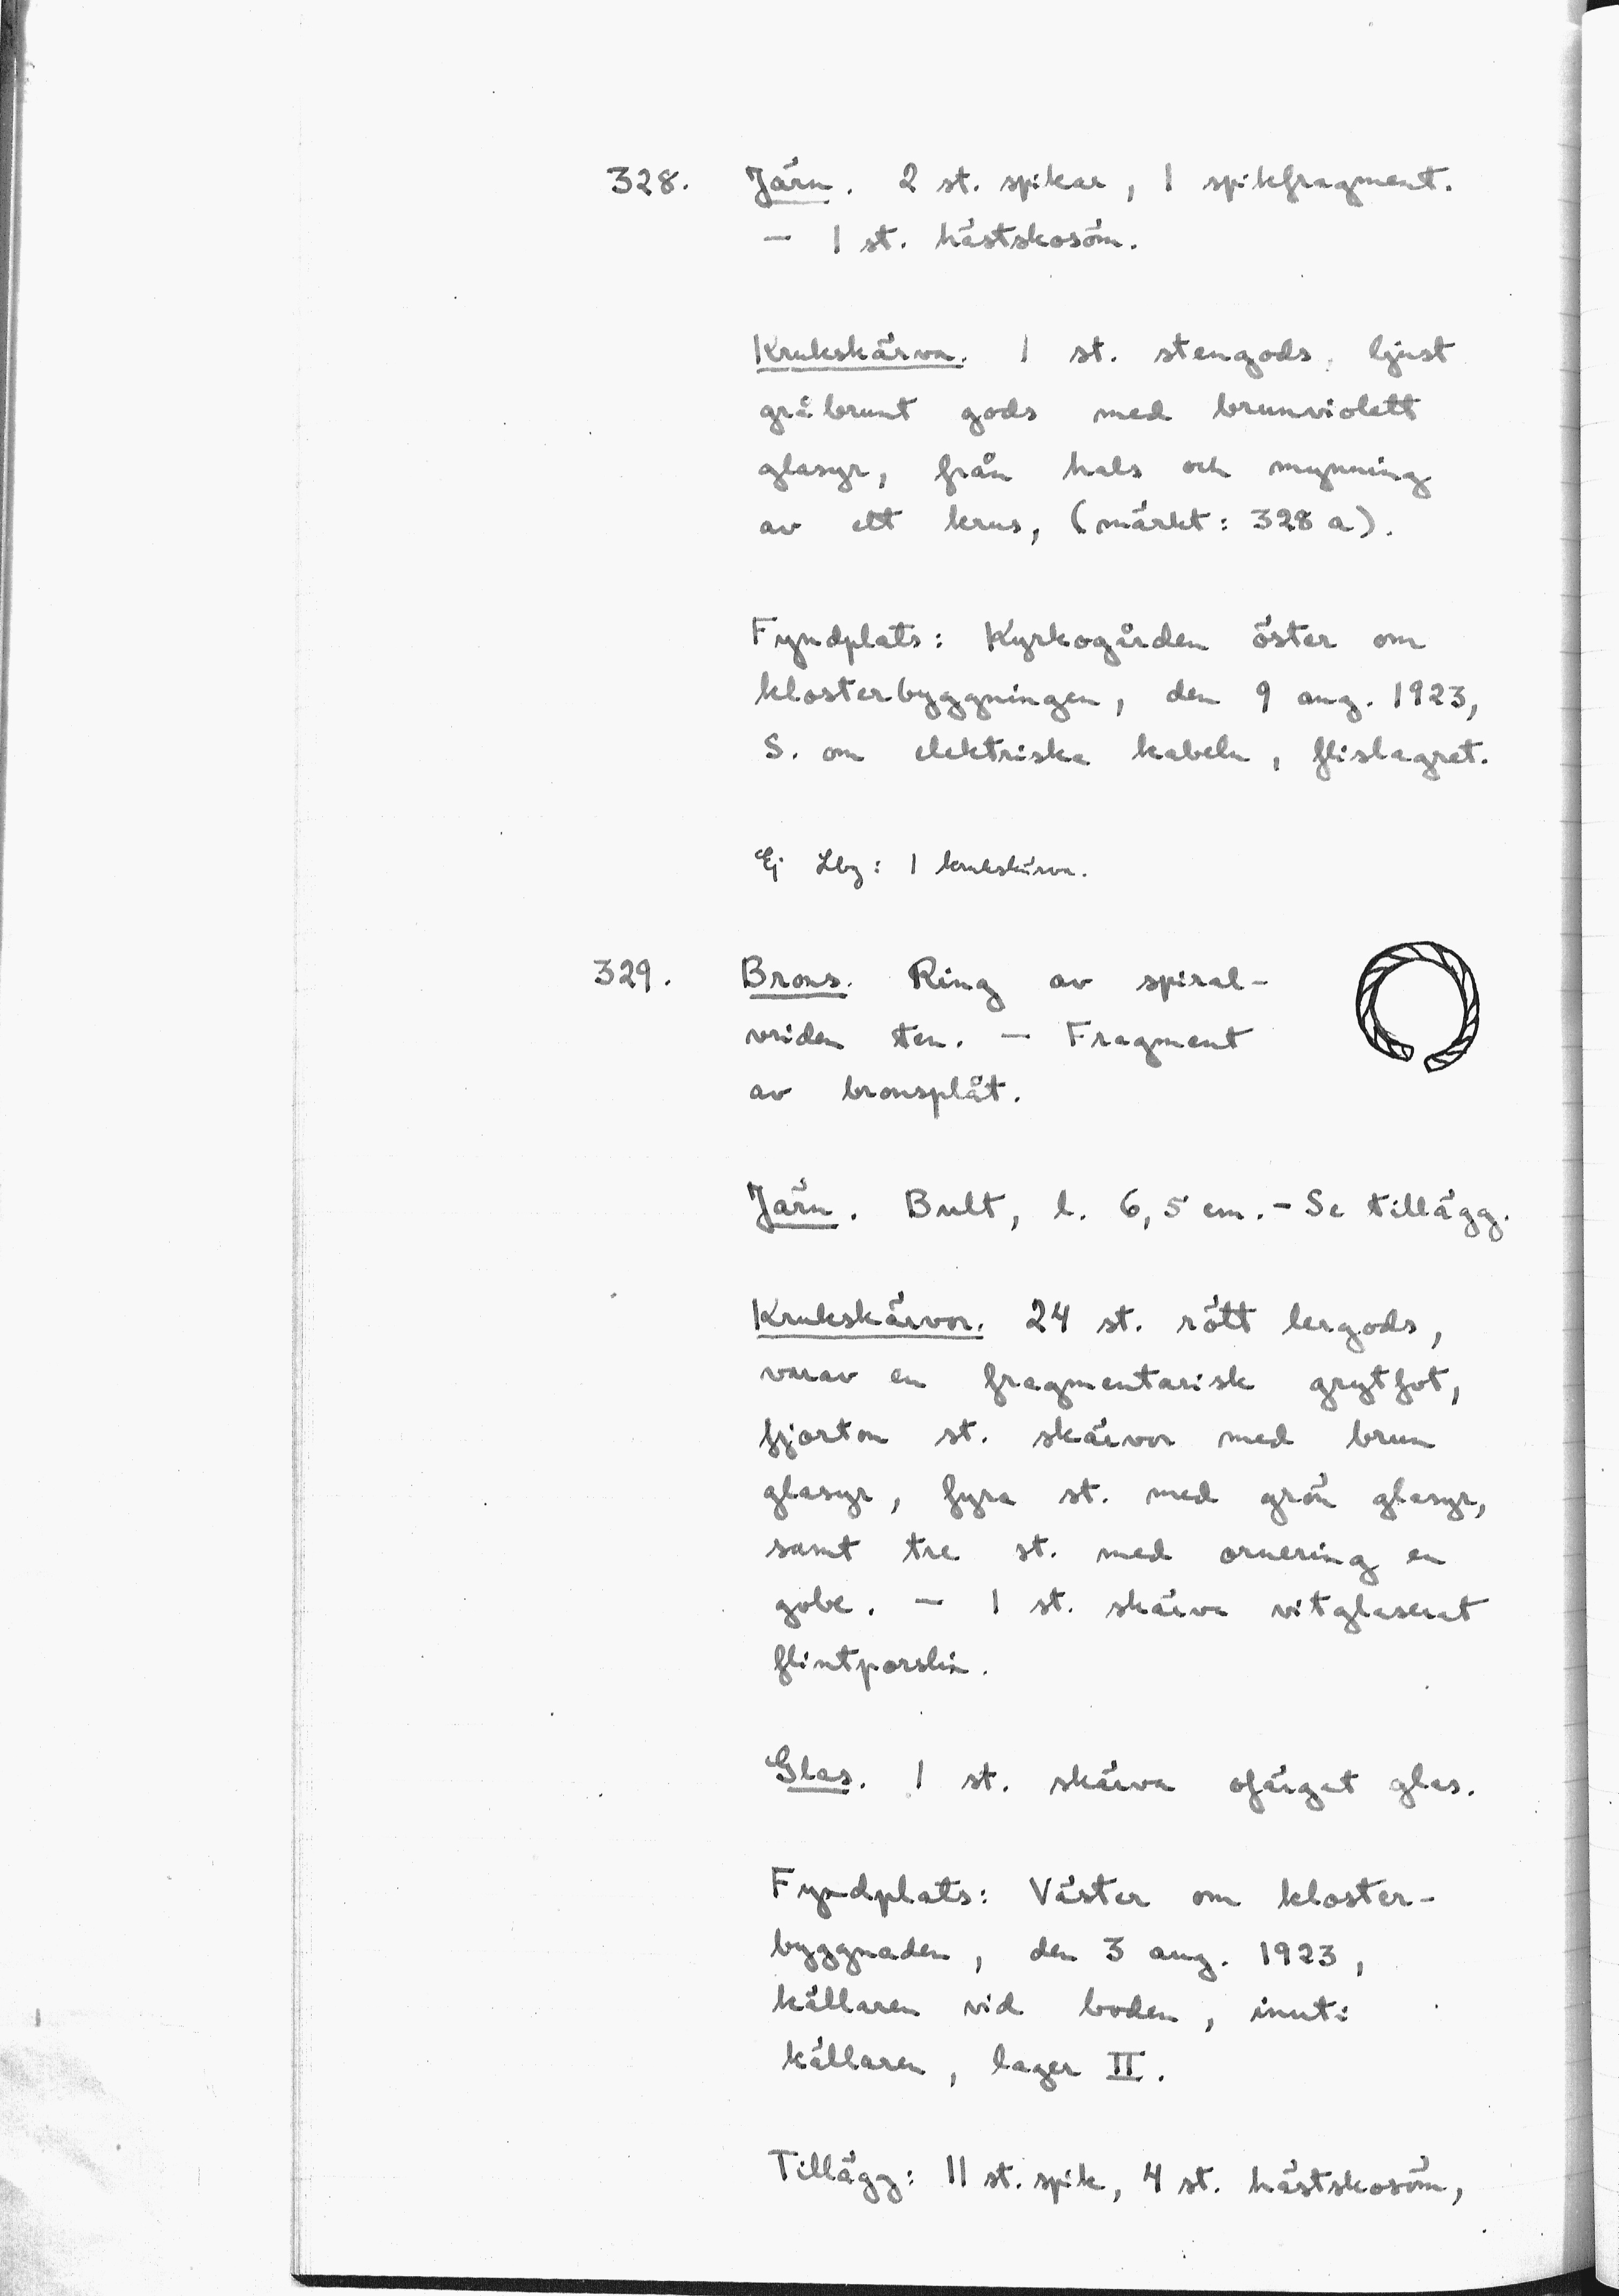 328. Järn. 2 st. spikar, 1 spikfragment.
— 1 st. hästskosöm.
Krukskärva. 1 st. stengods, ljust
gråbrunt gods med brunviolett
glasyr, från hals och mynning
av ett krus, (märkt: 328 a).
Fyndplats: Kyrkogården öster om
klosterbyggningen, den 9 aug. 1923,
S. om elektriska kabeln, flislagret.
Ej Lbg: 1 krukskärva.
329. Brons. Ring av spiral-
vriden ten. — Fragment
av bronsplåt.
Järn. Bult, l. 6,5 cm. - Se tillägg.
Krukskärvor. 24 st. rött lergods,
varav en fragmentarisk grytfot,
fjorton st. skärvor med brun
glasyr, fyra st. med grön glasyr,
samt tre st. med ornering en
gobe. — 1 st. skärva vitglaserat
flintporslin.
Glas. 1 st. skärva ofärgat glas.
Fyndplats: Väster om kloster-
byggnaden, den 3 aug. 1923,
källaren vid boden, inuti
källaren, lager II.
Tillägg: 11 st. spik, 4 st. hästskosöm,